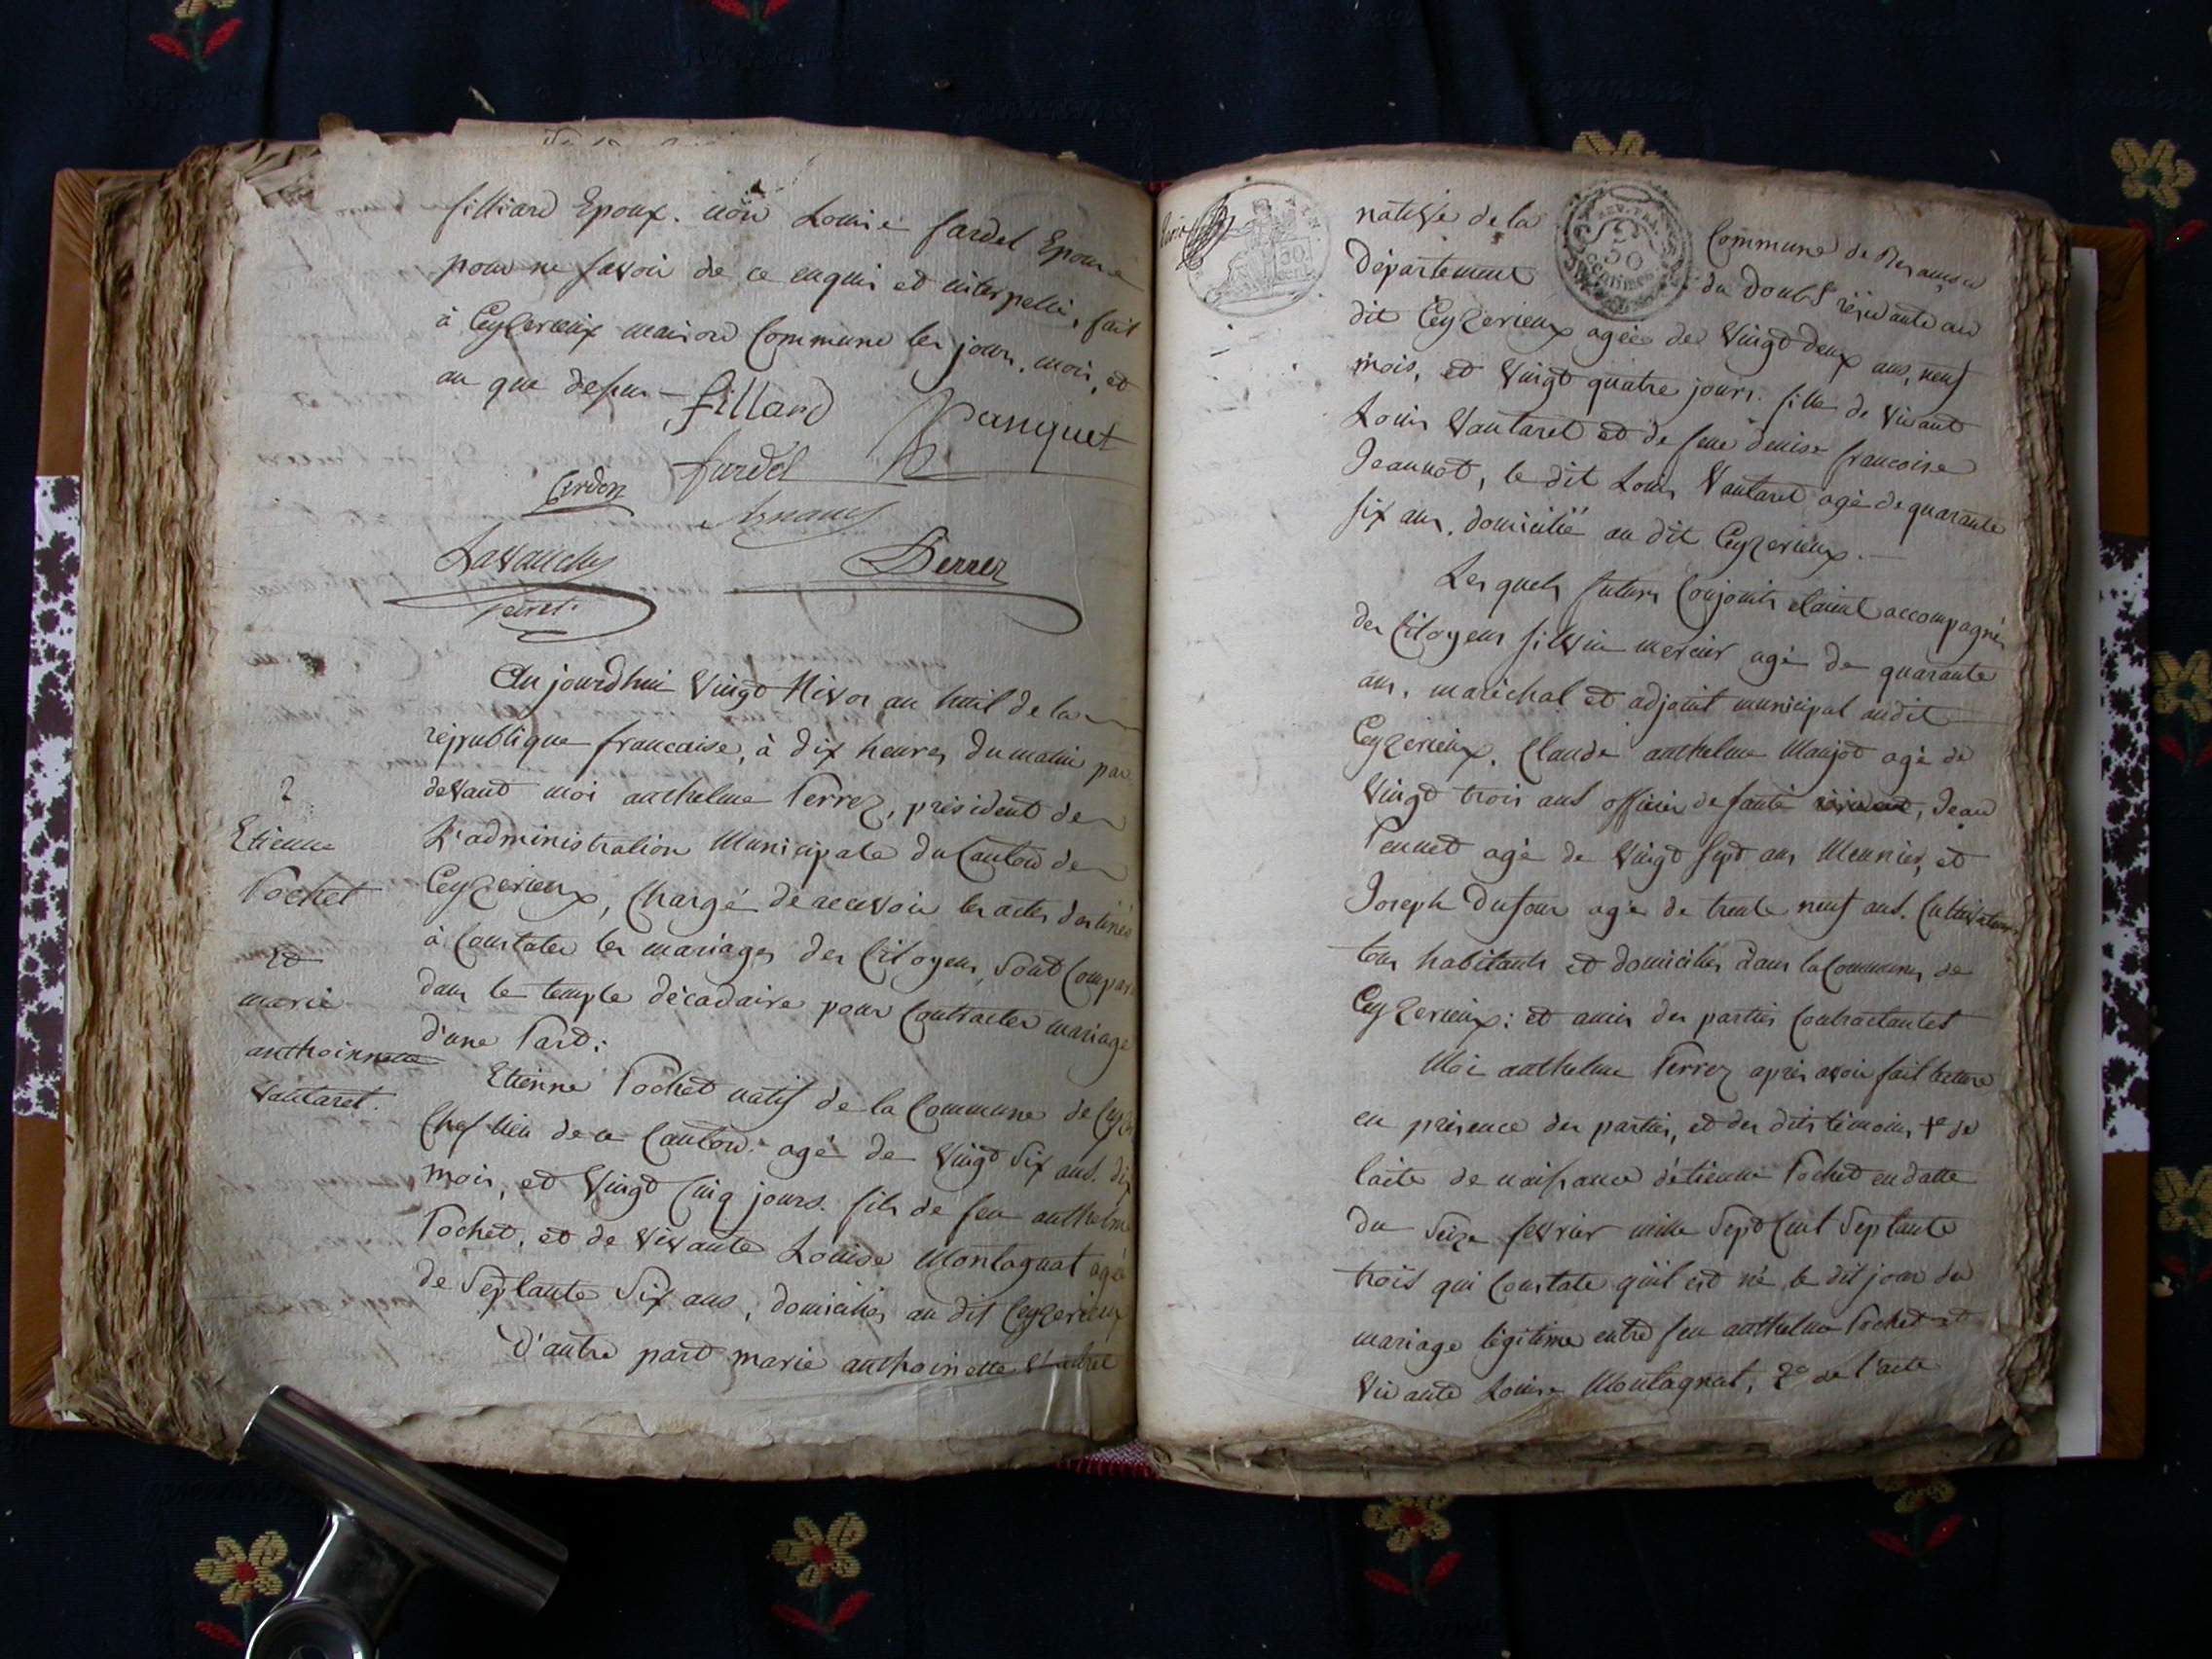 filliard Epoux. non Louise fardel Epouse
pour ne savoir de ce enquis et interpellé, fait
à Ceyzerieux maison Commune les jour, mois, et
an que dessus — fillard
Panquet
fardél
Cerdon
Lavanchy
Ferrez
Aujourdhui Vingt Nivos an huil de la
république francaise, à dix heures du matin par
devant moi anthelme Ferrez, président de
L'administration Municipale du Canton de
Ceyzerieux, Chargé de recevoir les actes destinés
à Constater les mariages des Citoyens, sont Compar
dans le temple décadaire pour Contracter mariage
d'une Part:
2
Etienne
Pochet
et
marie
anthoinnette
Vautaret.
Etienne Pochet natif de la Commune de Cyz
Chef lieu de ce Canton. agé de Vingt Six ans. dix
mois, et Vingt Cinq jours. fils de feu anthelme
Pochet, et de vivante Louise Montagnat agé
de Septante Six ans, domicilies au dit Ceyzerieux
D'autre part marie anthoinette Vautret
native de la Commune de Besançon
REP. FRA.
50
centimes
Département du Doubs résidante au
dit Ceyzerieux agée de Vingt deux ans, neuf
mois, et Vingt quatre jours. fille de Vivant
Louis Vautaret et de feue denise francoise
Jeannot, le dit Louis Vautaret agé de quarante
six ans. domicilié au dit Ceyzerieux. —
Lesquels futurs Conjoints étaient accompagnés
des Citoyens Silvin mercier agé de quarante
ans, maréchal et adjoint municipal audit
Ceyzerieux, Claude anthelme Maujot agé de
Vingt trois ans officier de santé, Jean
Pennet agé de Vingt sept ans Meunier, et
Joseph Dufour agé de trente neuf ans. Cultivateur
tous habitants et domiciliés dans la Commune de
Ceyzerieux: et amis des parties Contractantes
Moi anthelme Ferrez après avoir fait lecture
en présence des parties, et des dits témoins, 1º de
lacte de naissance d'étienne Pochet en datte
du Seize fevrier mille Sept Cent Septante
trois qui Constate qu'il est né le dit jour du
mariage légitime entre feu anthelme Pochet et
Vivante Louise Montagnat, 2º de l'acte